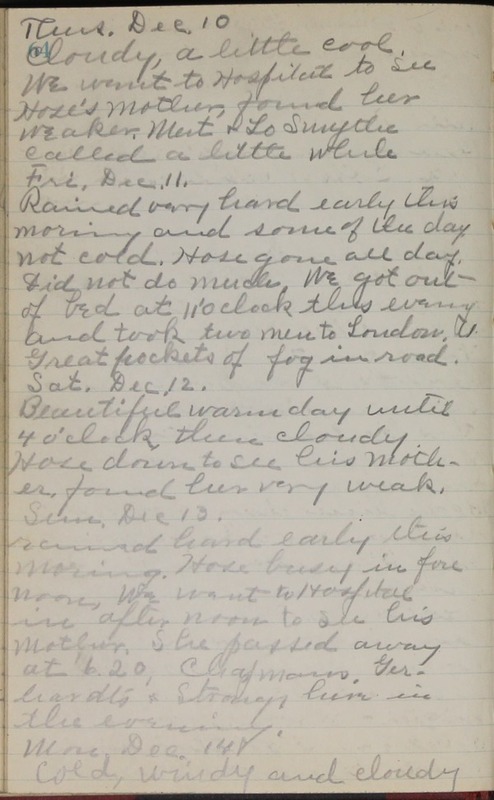 Thurs. Dec. 10
Cloudy, a little cool.
We went to Hospital to see
Hose's Mother, found her
weaker. Mert & Lo Smythe
called a little while
Fri. Dec. 11.
Rained very hard early this
morning and some of the day
not cold. Hose gone all day.
Did not do much. We got out
of bed at 11 oclock this evening
and took two men to London, O.
Great pockets of fog in road.
Sat. Dec. 12.
Beautiful warm day until
4 o'clock, then cloudy.
Hose down to see his Moth-
er. found her very weak.
Sun. Dec 13.
rained hard early this
morning. Hose busy in fore
noon, We went to Hospital
in after noon to see his
Mother. She passed away
at 6.20. Chapmans, Ger-
hardts & Strongs here in
the evening.
Mon. Dec. 14
Cold, windy and cloudy